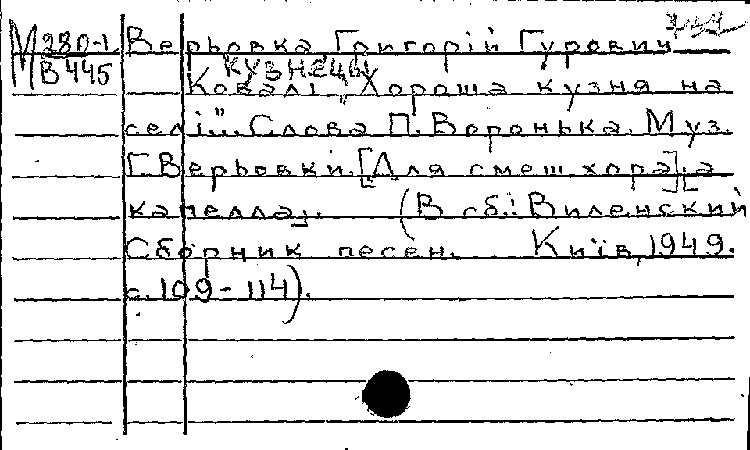 М 280-1
В 445
Верьовка Григорій Гурович
КУЗНЕЦЫ
Ковалі. „Хороша кузня на
селі". Слова П. Воронька. Муз.
Г. Верьовки. [Для смеш. хора] [а
капелла]. (В сб.: Виленский
Сборник песен. Київ, 1949.
с. 109-114).